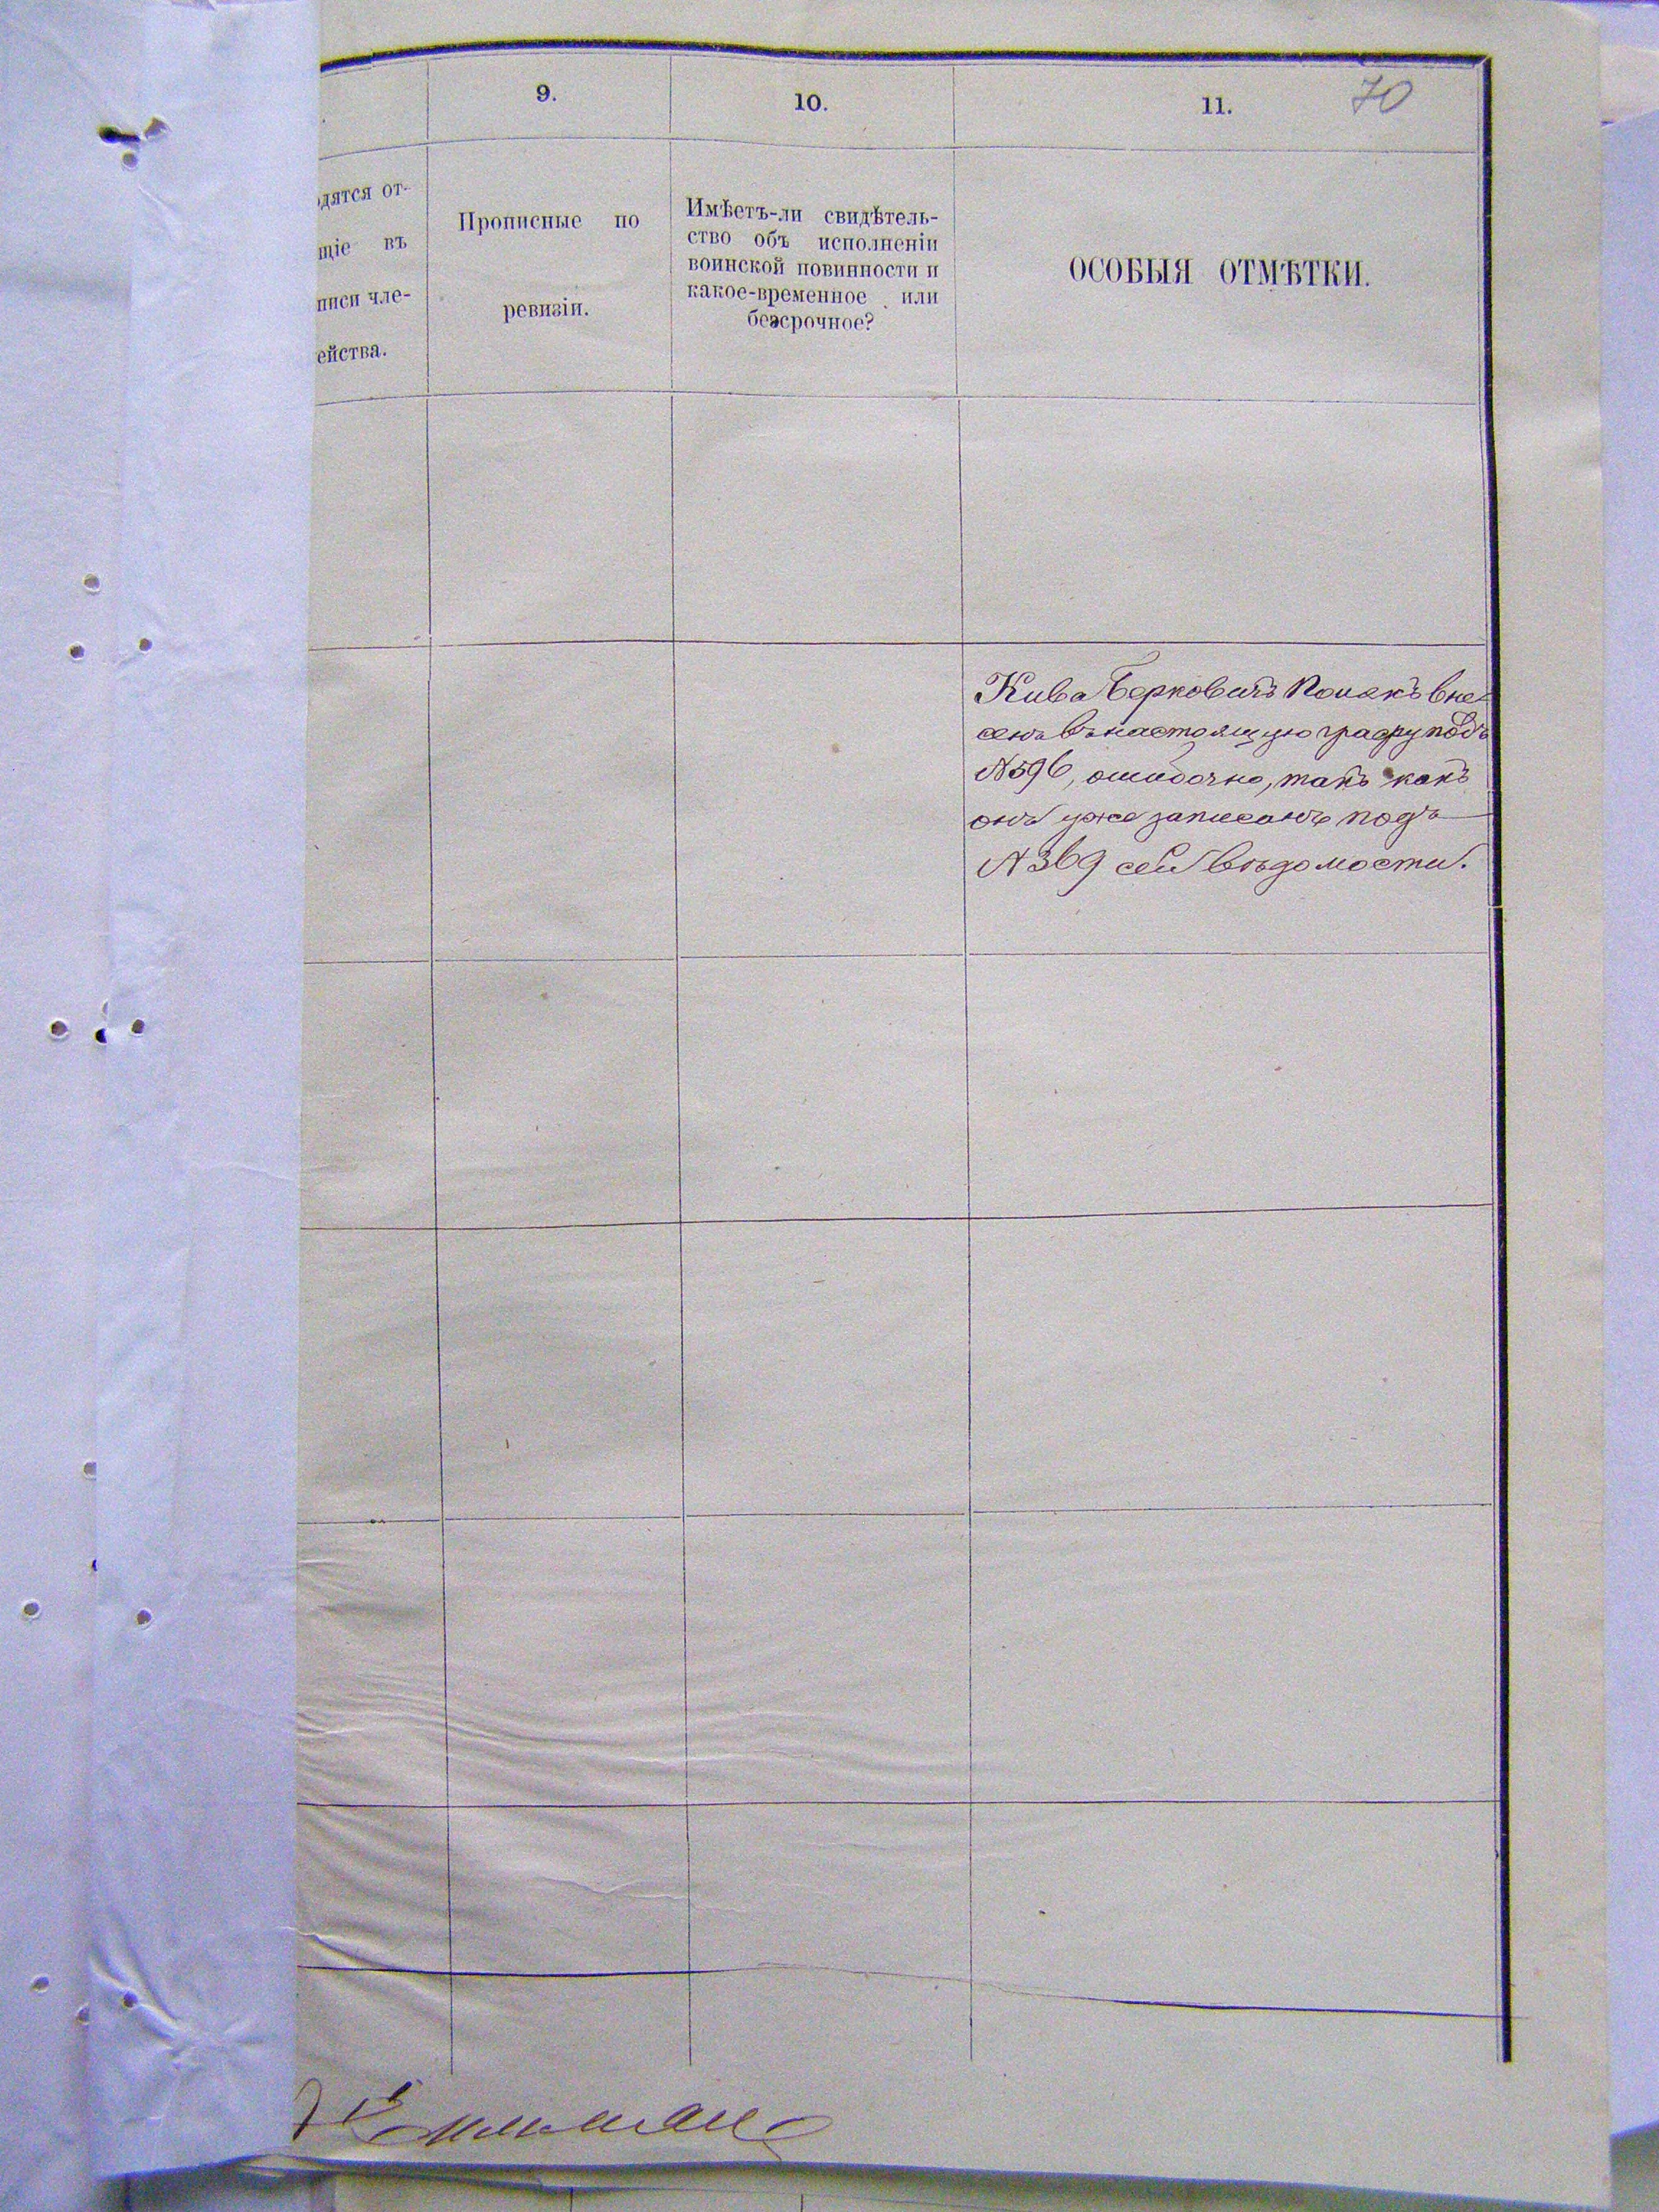 9.
10.
11.
70
одятся от-
щіе въ
писи чле-
ейства.
Прописные по
ревизіи.
Имѣетъ-ли свидѣтель-
ство объ исполненіи
воинской повинности и
какое-временное или
безсрочное?
ОСОБЫЯ ОТМѢТКИ.
Кива Берковичъ Полякъ вне-
сенъ въ настоящую графу подъ
№ 596, ошибочно, такъ какъ
онъ уже записанъ подъ
№ 369 сей вѣдомости.